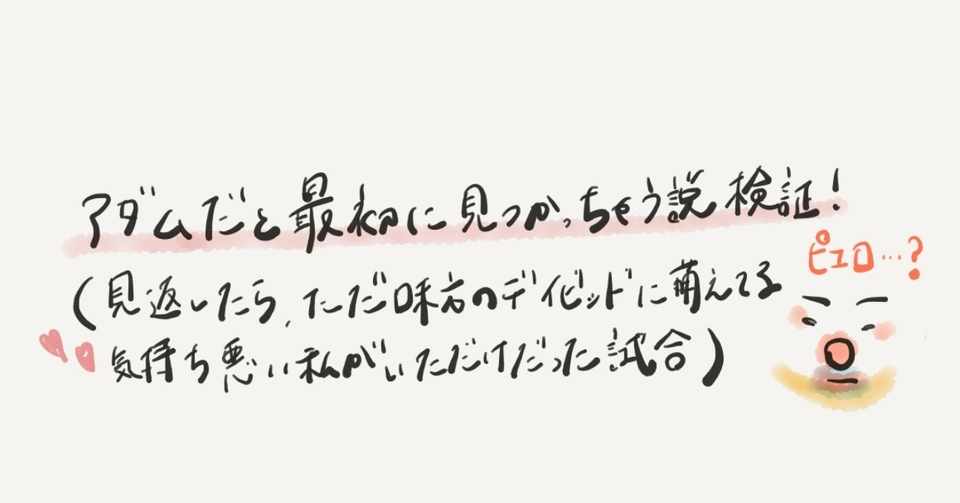 アダムだと最初に見つかっちゃう説検証!
ピエロ…?
(見返したら、ただ味方のデイビッドに萌えてる
気持ち悪い私がいただけだった試合)